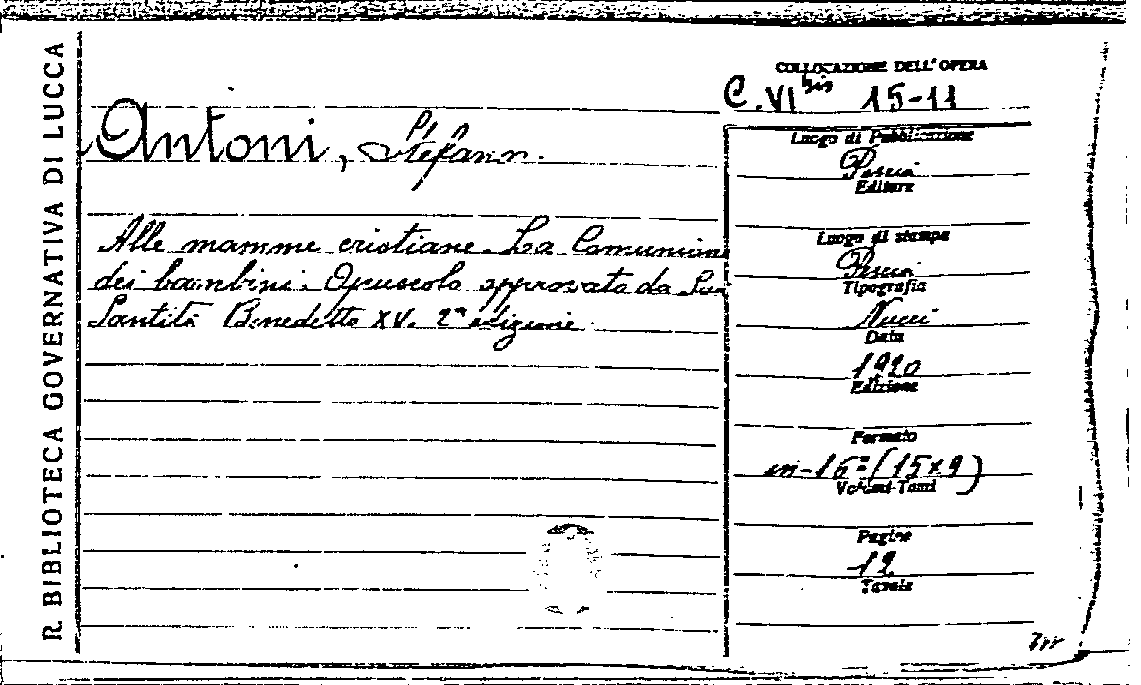 R. BIBLIOTECA GOVERNATIVA DI LUCCA
COLLOCAZIONE DELL'OPERA
C. VI bis 15-11
Antoni, Stefano.
Alle mamme cristiane. La Comunione
dei bambini. Opuscolo approvato da Sua
Santità Benedetto XV. 2ª edizione
Luogo di Pubblicazione
Pescia
Editore
Luogo di stampa
Pescia
Tipografia
Nucci
Data
1920
Edizione
Formato
in-16º (15x9)
Volumi-Tomi
Pagine
12
Tavole